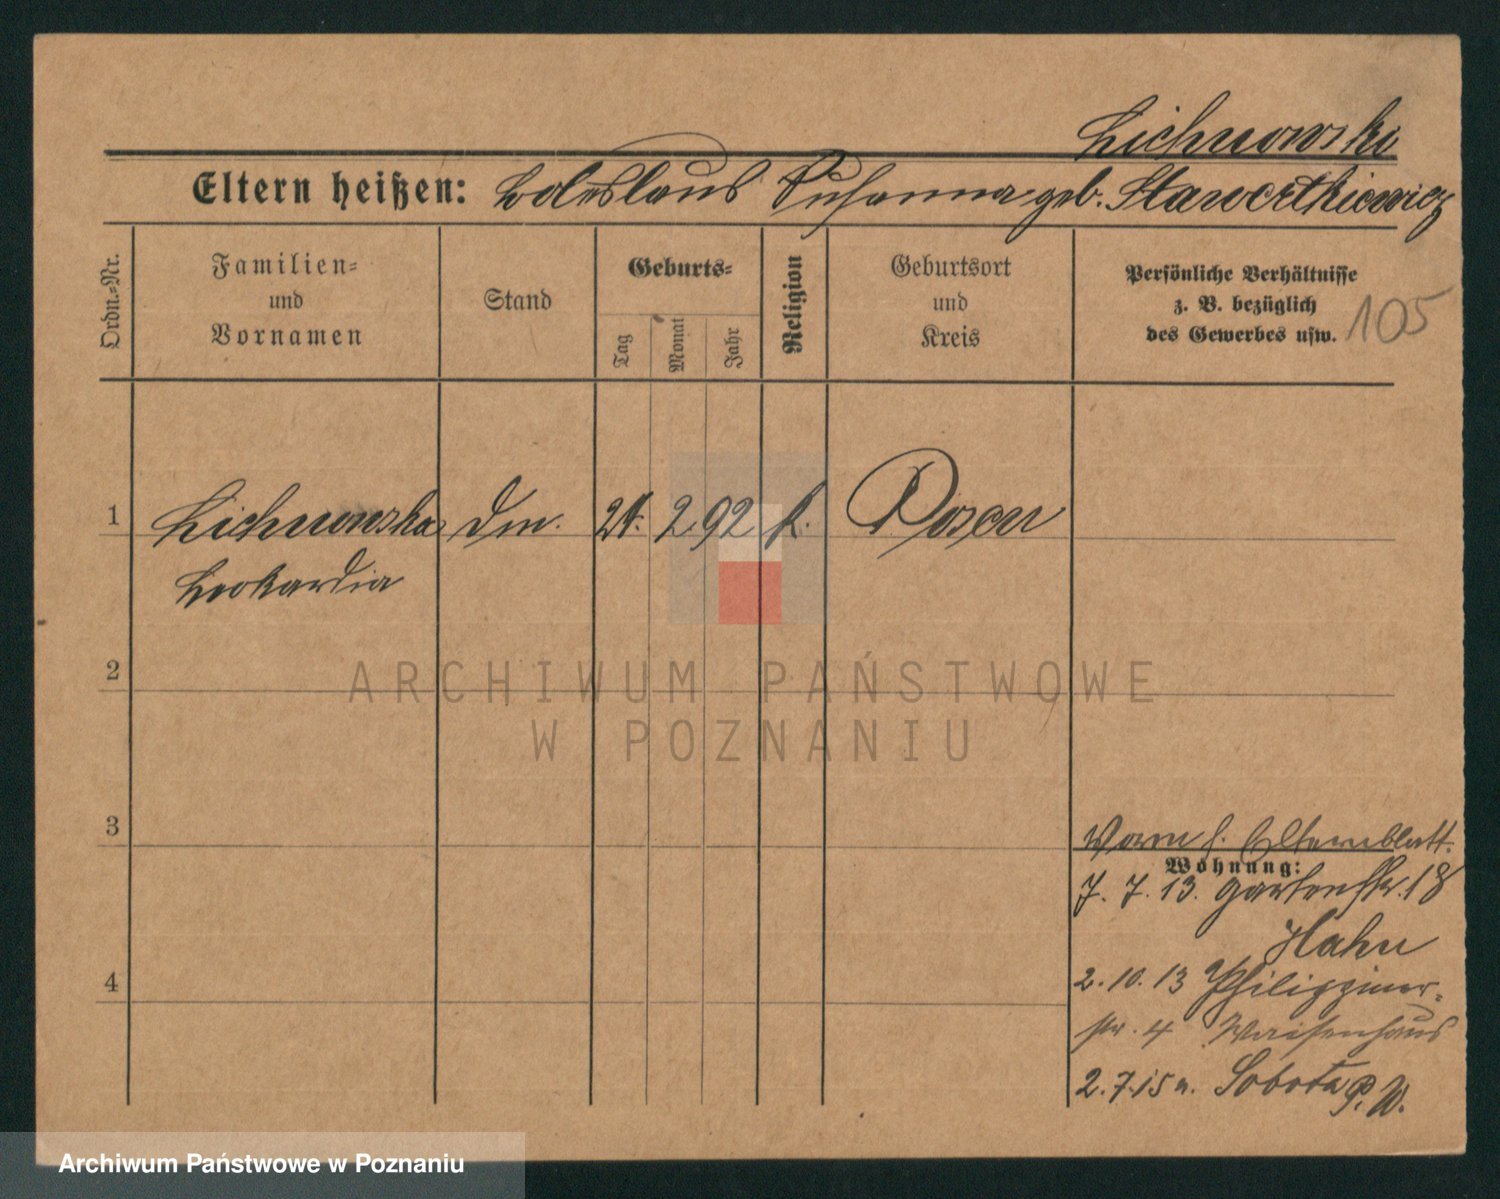 Lichnowski
Eltern heißen: Boleslaus Susanna geb. Stawertkiewicz
Ordn.-Nr.
Familien-
und
Vornamen
Stand
Geburts-
Tag
Monat
Jahr
Religion
Geburtsort
und
Kreis
Persönliche Verhältnisse
z. B. bezüglich
des Gewerbes usw.
105
1
Lichnowska 2. 92 k. Posen
Leokardia
2
3
4
Vorm s. Elternblatt.
Wohnung:
7. 7. 13. Gartenstr. 18
Hahn
2. 10. 13 Philippiner-
str. 4 Waisenhaus
2. 7. 15 n. Sobota P. W.
ARCHIWUM PAŃSTWOWE
W POZNANIU
Archiwum Państwowe w Poznaniu